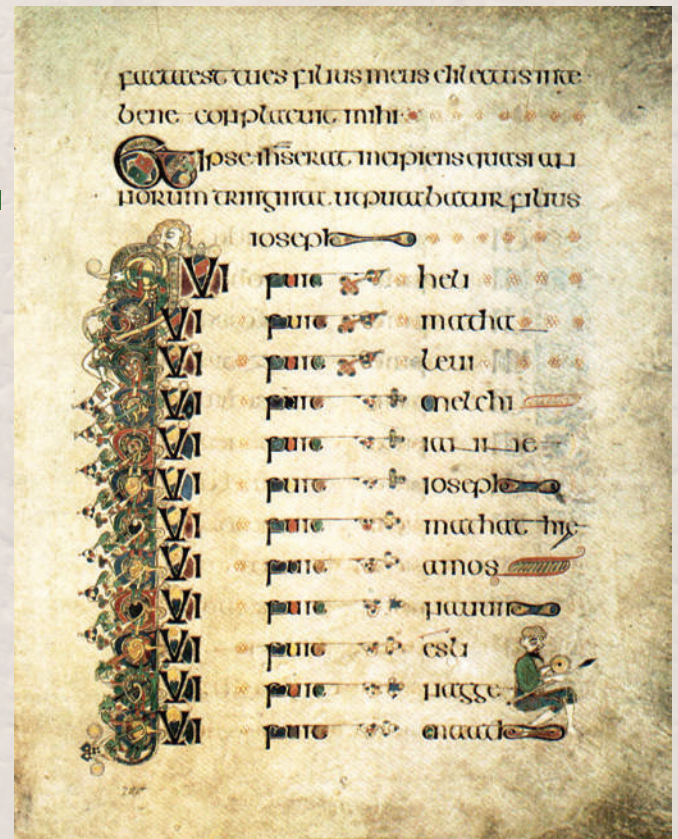 facta est tu es filius meus dilectus in te
bene conplacuit mihi
Et ipse ihs erat incipiens quasi an
norum triginta ut putabatur filius
ioseph
QUI fuit heli
QUI fuit mathat
QUI fuit leui
QUI fuit melchi
QUI fuit iannae
QUI fuit ioseph
QUI fuit mathathie
QUI fuit amos
QUI fuit nauum
QUI fuit esli
QUI fuit nagge
QUI fuit maath